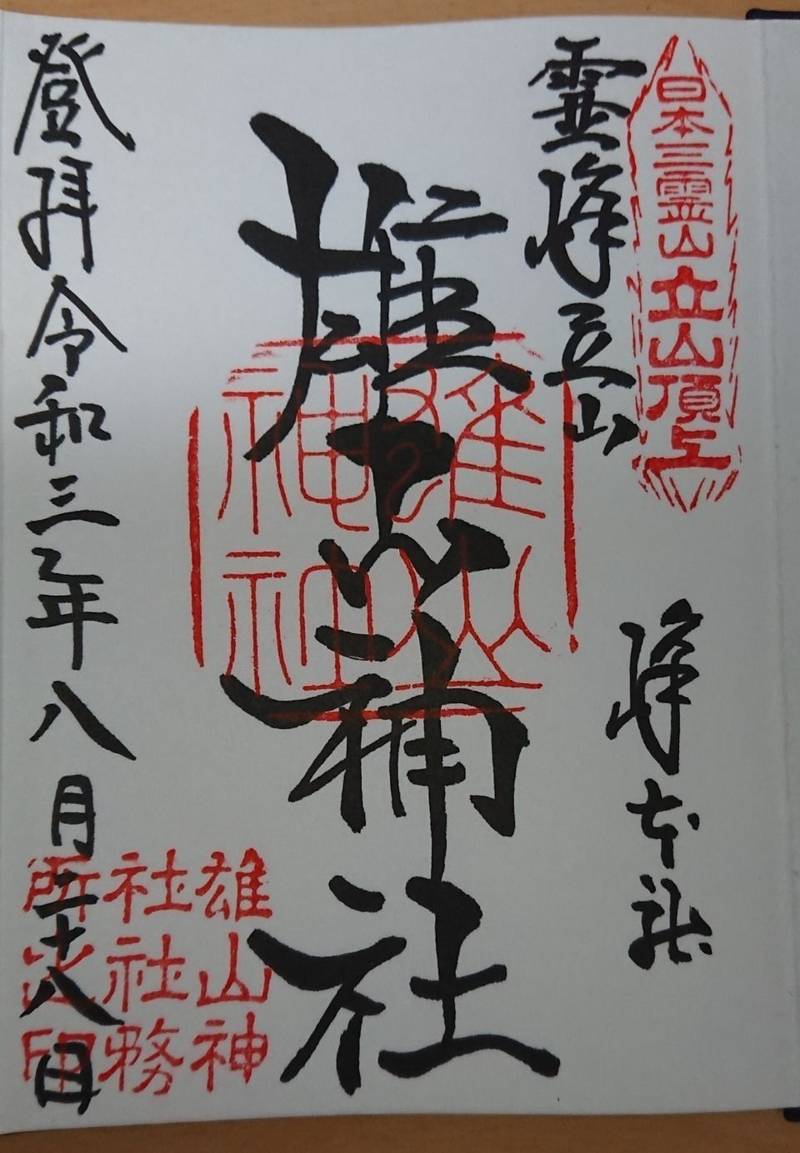 日本三霊山立山頂上
霊峰立山
峰本社
雄山神社
雄山神
社社務
所之印
登拝令和三年八月二十八日